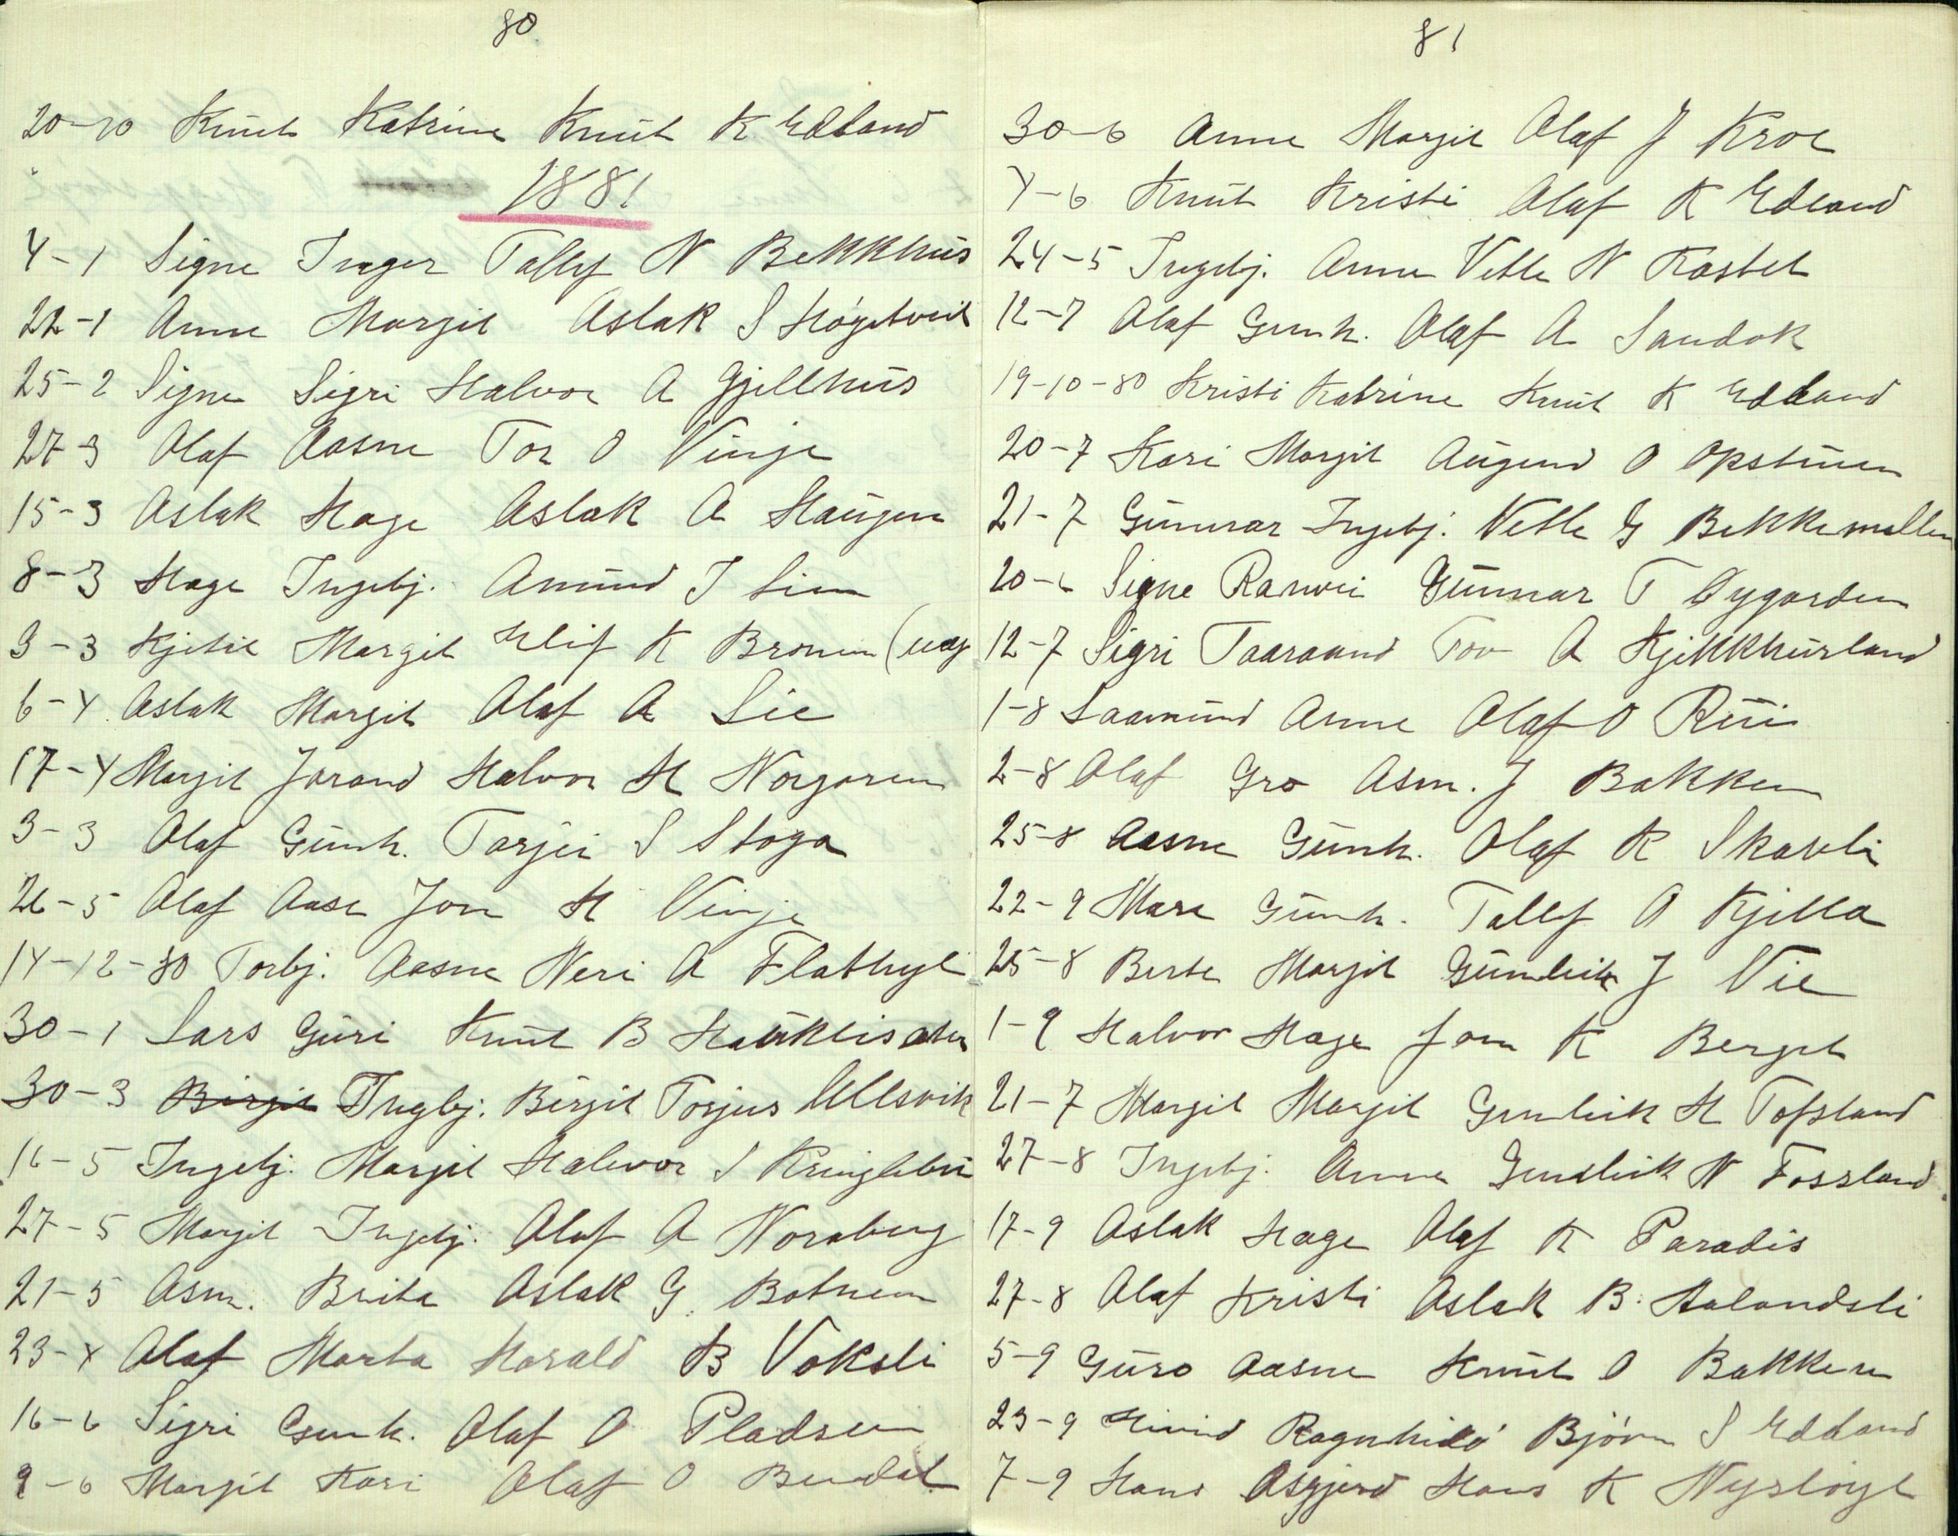 80
20-10 Knut Katrine Knut K Edland
1881
4-1 Signe Inger Tallef N Bekkhus
22-1 Anne Margit Aslak S Høgetveit
25-2 Signe Sigri Halvor A Gjellhus
27-3 Olaf Aasne Tor O Vinje
15-3 Aslak Hæge Aslak A Haugen
8-3 Hæge Ingebj. Amund J Lien
3-3 Kjetil Margit Elif K Bronen (
6-4 Aslak Margit Olaf A Lie
17-4 Margit Jorand Halvor H Norgaren
3-3 Olaf Gunh. Torjei S Stoga
26-5 Olaf Aase Jon H Vinje
14-12-80 Torbj. Aasne Neri A Flathyl
30-1 Lars Guri Knut B Haukliseter
30-3 Birgit Ingbj. Birgit Torjus Ullsvik
16-5 Ingebj. Margit Halvor S Kringlebu
27-5 Margit Ingebj. Olaf A Noraberg
21-5 Asm. Brita Aslak G. Botnen
23-4 Olaf Marta Harald B Voksli
16-6 Sigri Gunh. Olaf O Pladsen
9-6 Margit Kari Olaf O Bendal
81
30-6 Anne Margit Olaf J Kros
4-6 Knut Kristi Olaf K Edland
24-5 Ingebj. Anne Vetle N Kastet
12-7 Olaf Gunh. Olaf A Sandok
19-10-80 Kristi Katrine Knut K Edland
20-7 Kari Margit Augund O Opstuen
21-7 Gunnar Ingebj. Vetle G Bekkemellen
20-6 Signe Ranvei Gunnar T Øygarden
12-7 Sigri Taaraand Tov A Kjikkhusland
1-8 Saamund Anne Olaf O Rui
2-8 Olaf Gro Asm. J Bakken
25-8 Aasne Gunh. Olaf K Skarsli
22-9 Mare Gunh. Tallef A Kjilla
25-8 Berte Margit Gunleik J Vie
1-9 Halvor Hæge Jon K Berget
21-7 Margit Margit Gunleik H Tofsland
27-8 Ingebj. Anne Gunleik N Fossland
17-9 Aslak Hæge Olaf K Paradis
27-8 Olaf Kristi Aslak B. Halandsli
5-9 Guro Aasne Knut O Bakken
23-9 Eivind Ragnhild Bjørn S Edland
7-9 Hans Asgjerd Hans K Nysløyt